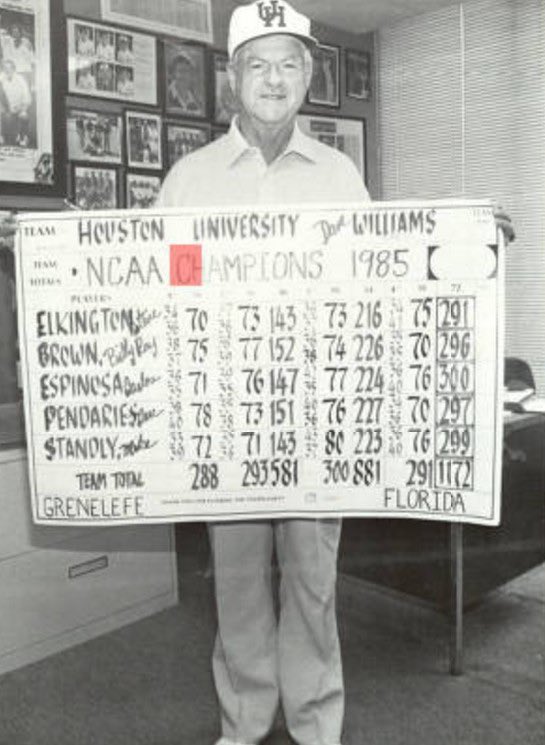 UH
TEAM HOUSTON UNIVERSITY Dave WILLIAMS
TEAM TOTALS • NCAA CHAMPIONS 1985
PLAYERS 72
ELKINGTON, Steve 70 73 143 73 216 75 291
BROWN, Billy Ray 75 77 152 74 226 70 296
ESPINOSA 71 76 147 77 224 76 300
PENDARIES 78 73 151 76 227 70 297
STANDLY, Mike 72 71 143 80 223 76 299
TEAM TOTAL 288 293 581 300 881 291 1172
GRENELEFE FLORIDA